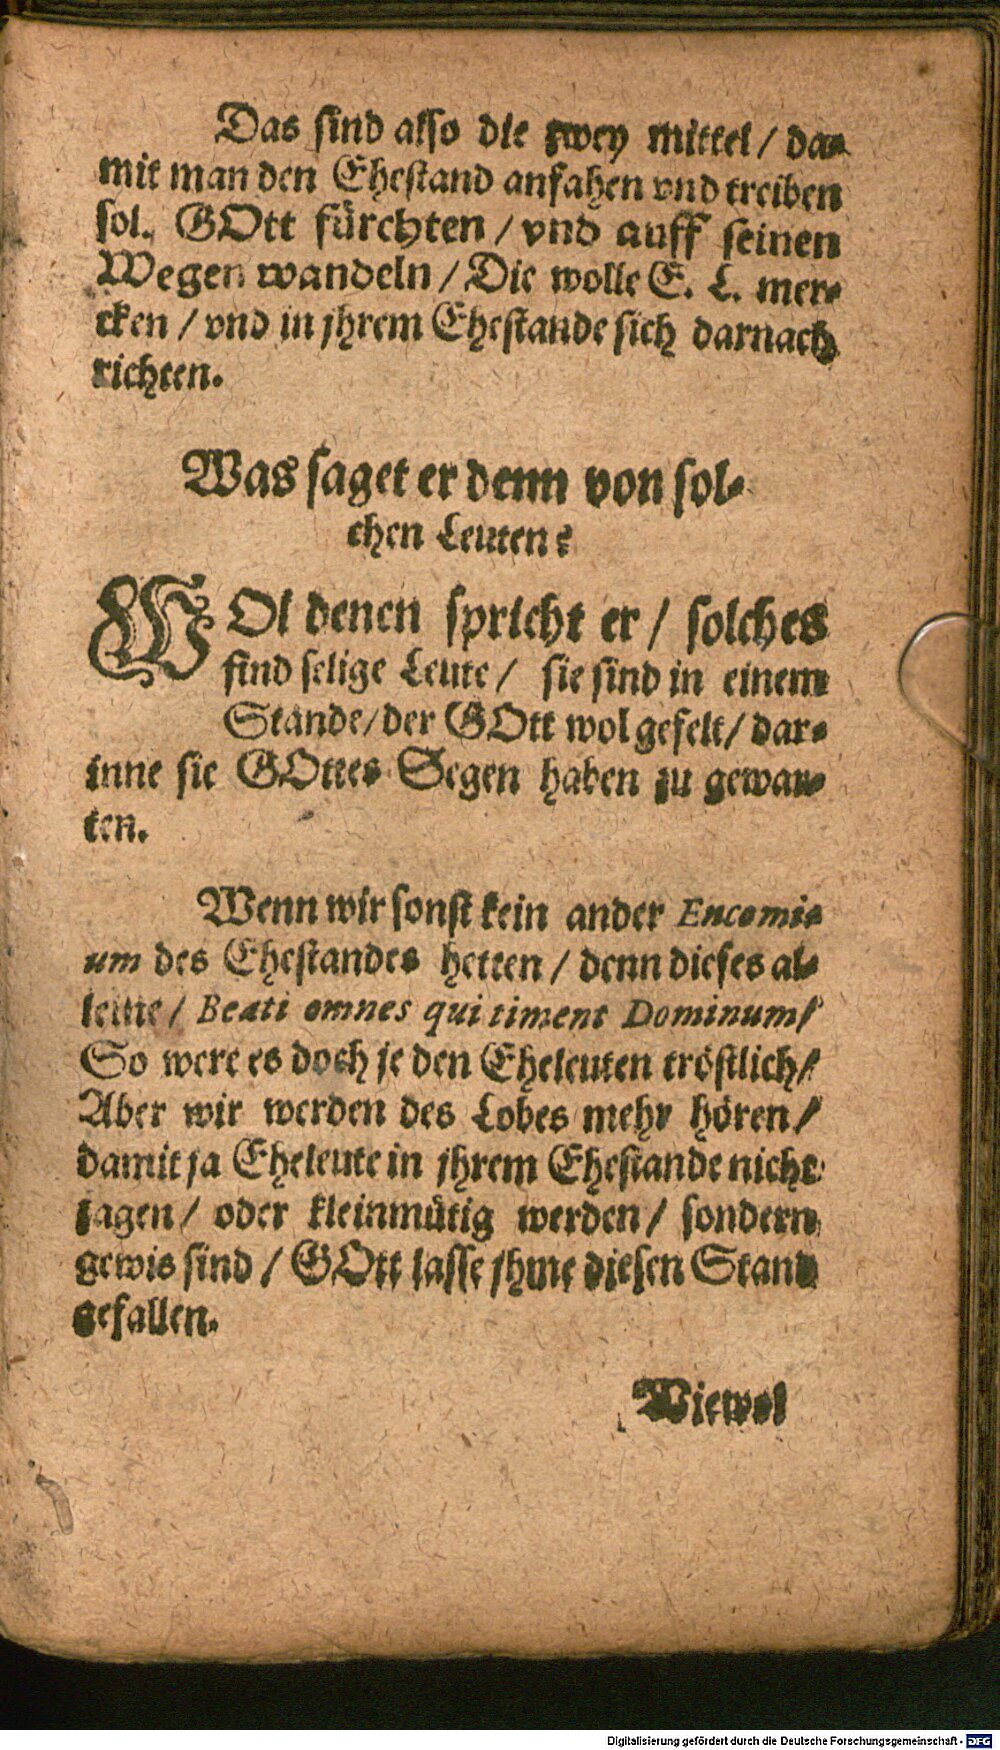 Das sind also die zwey mittel / da-
mit man den Ehestand anfahen vnd treiben
sol. GOtt fürchten / vnd auff seinen
Wegen wandeln / Die wolle E. L. mer-
cken / vnd in jhrem Ehestande sich darnach
richten.
Was saget er denn von sol-
chen Leuten?
WOl denen spricht er / solches
sind selige Leute / sie sind in einem
Stande / der GOtt wol gefelt / dar-
inne sie GOttes Segen haben zu gewar-
ten.
Wenn wir sonst kein ander Encomi-
um des Ehestandes hetten / denn dieses al-
leine / Beati omnes qui timent Dominum /
So were es doch je den Eheleuten tröstlich /
Aber wir werden des Lobes mehr hören /
damit ja Eheleute in jhrem Ehestande nicht
zagen / oder kleinmütig werden / sondern
gewis sind / GOtt lasse jhme diesen Stand
gefallen.
Wiewol
Digitalisierung gefördert durch die Deutsche Forschungsgemeinschaft - DFG